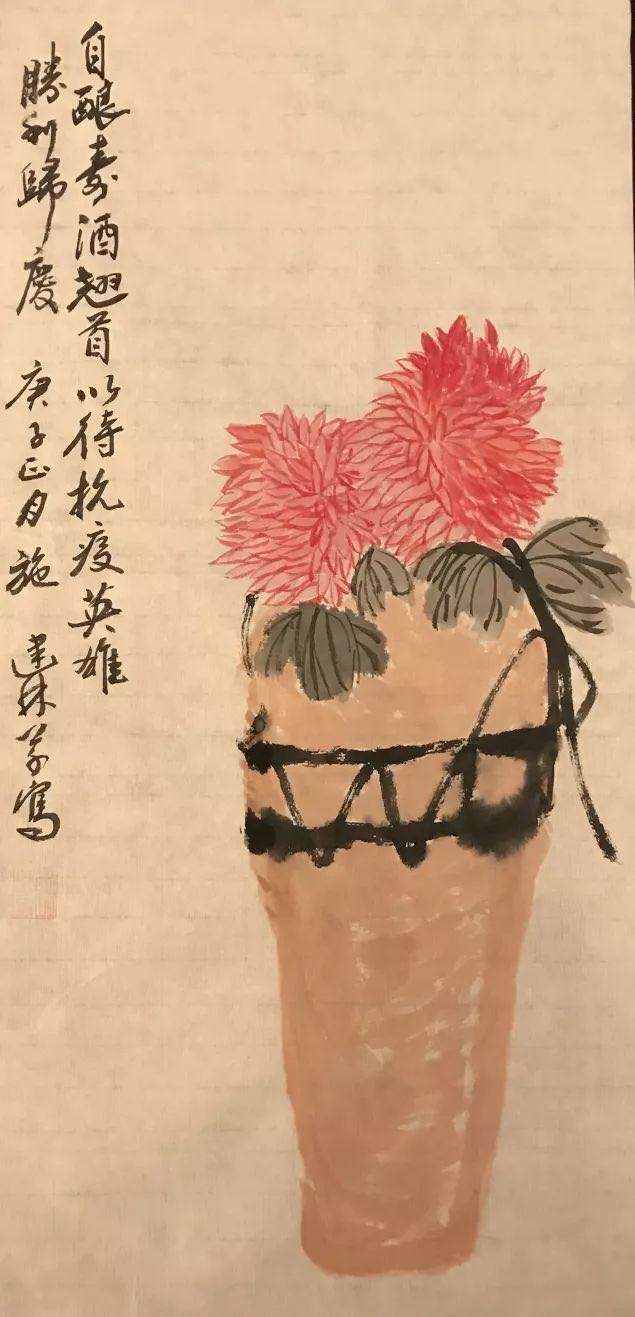 自酿寿酒翘首以待抗疫英雄
勝利歸慶 庚子正月施建林并寫